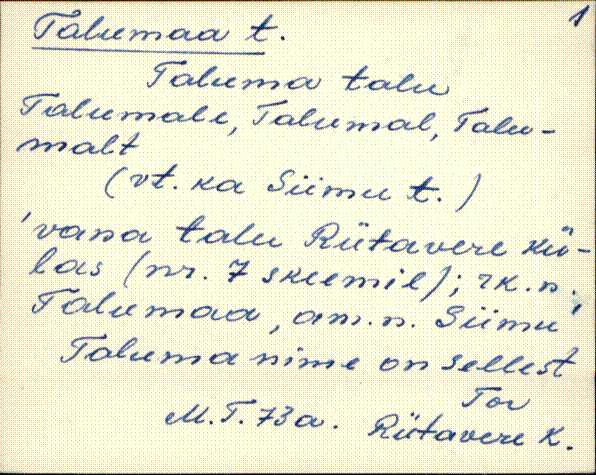 1
Talumaa t.
Taluma talu
Talumale, Talumal, Talu-
malt
(vt. ka Siimu t.)
'vana talu Rütavere kü-
las (nr. 7 skeemil); rk. n.
Talumaa, am. n. Siimu'
Taluma nime on sellest
Tor
M.T. 73 a. Rütavere k.